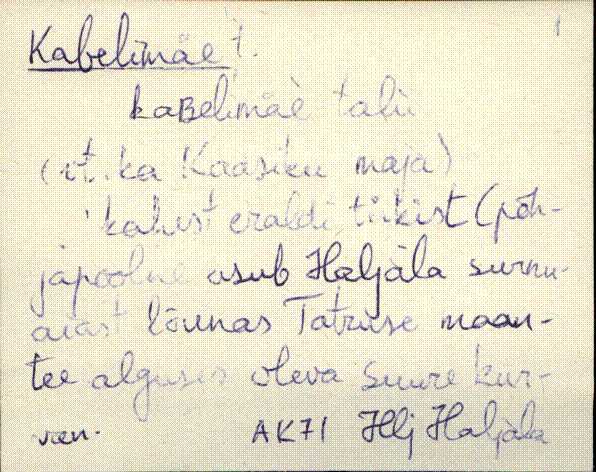 Kabelimäe t. 1
kaBelimäe talu
(vt. ka Kaasiku maja)
kahest eraldi tükist (põh-
japoolne asub Haljala surnu-
aiast lõunas Tatruse maan-
tee alguses oleva suure kur-
AK71 Hlj Haljala